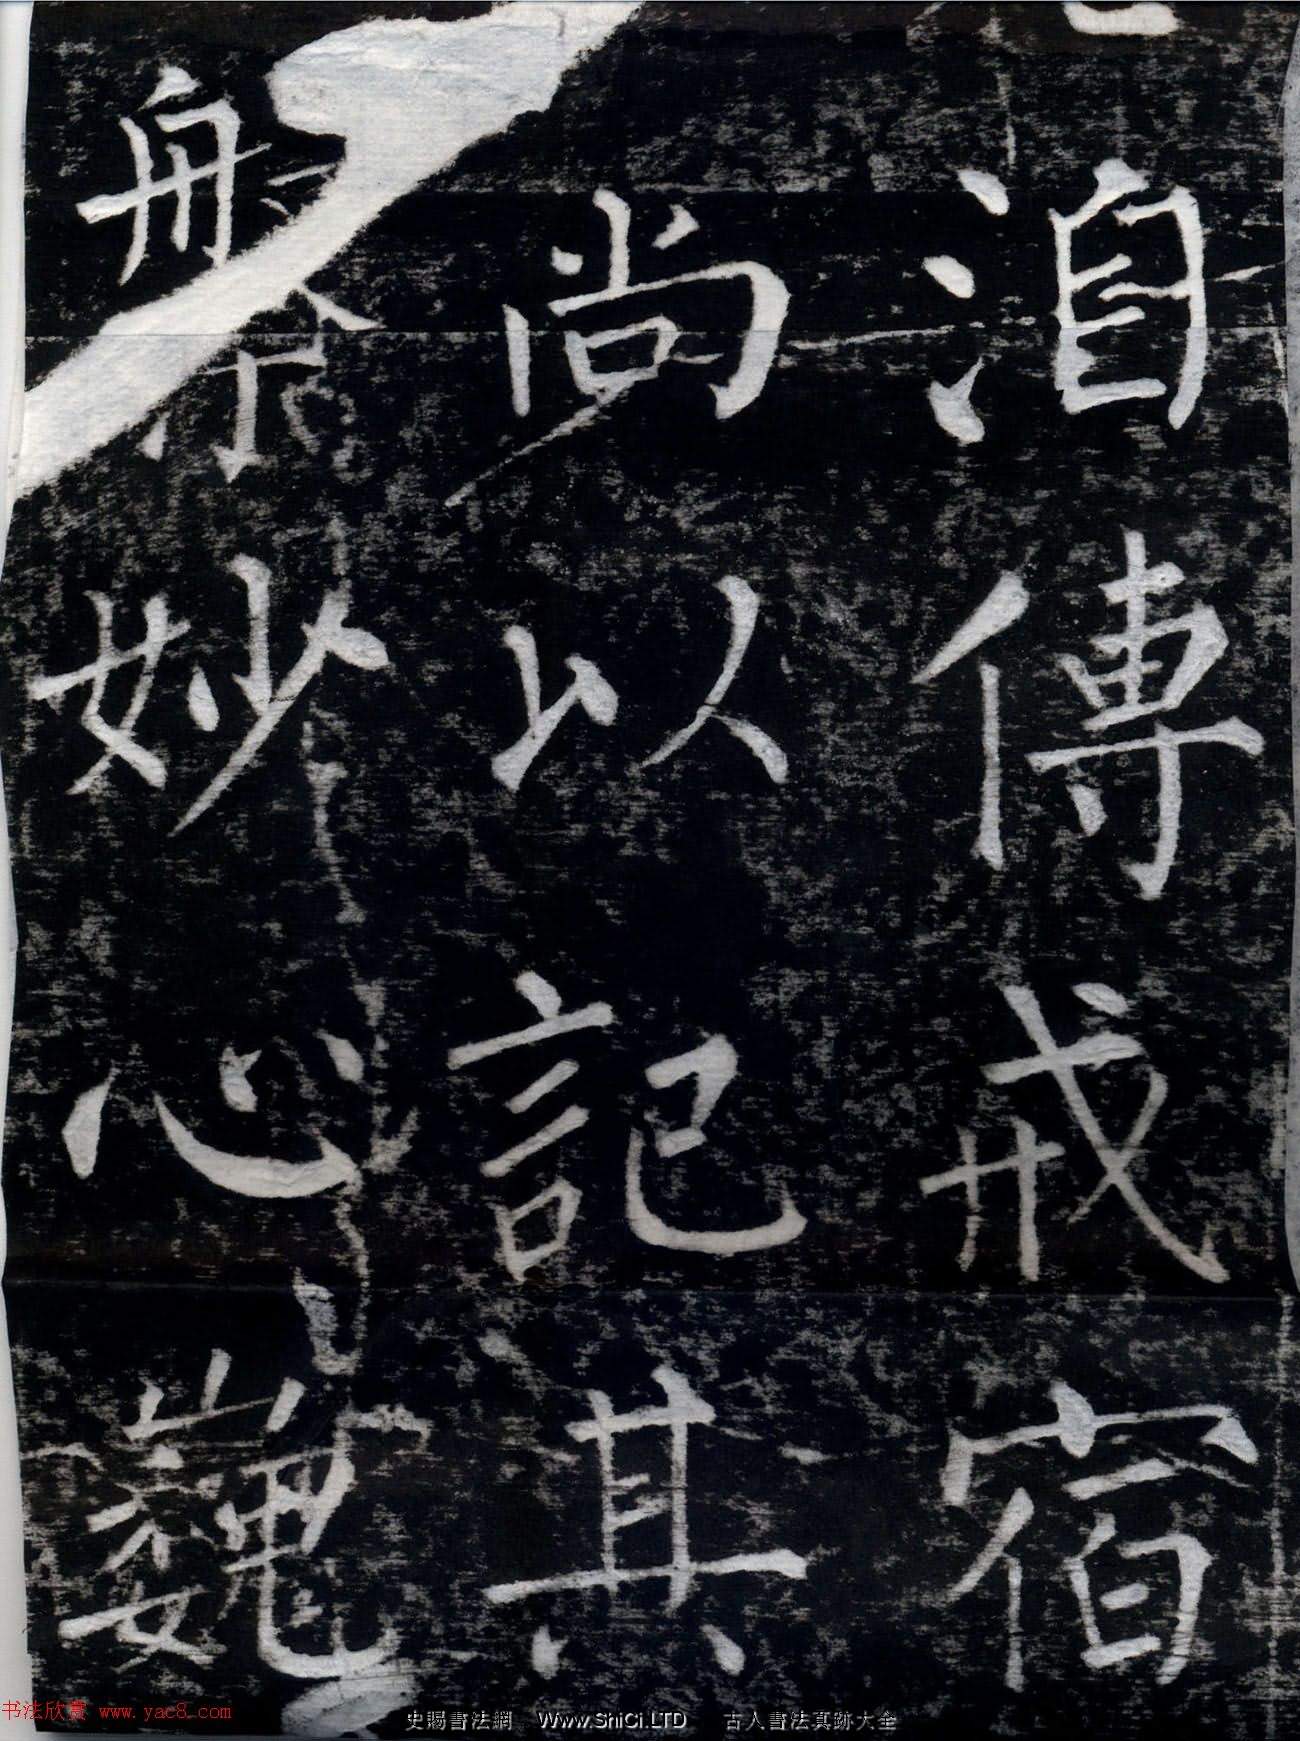 洎傳戒宿
尚以記其
妙心巍
书法欣赏 www.yac8.com
史賜書法網 Www.ShiCi.LTD 古人書法真跡大全